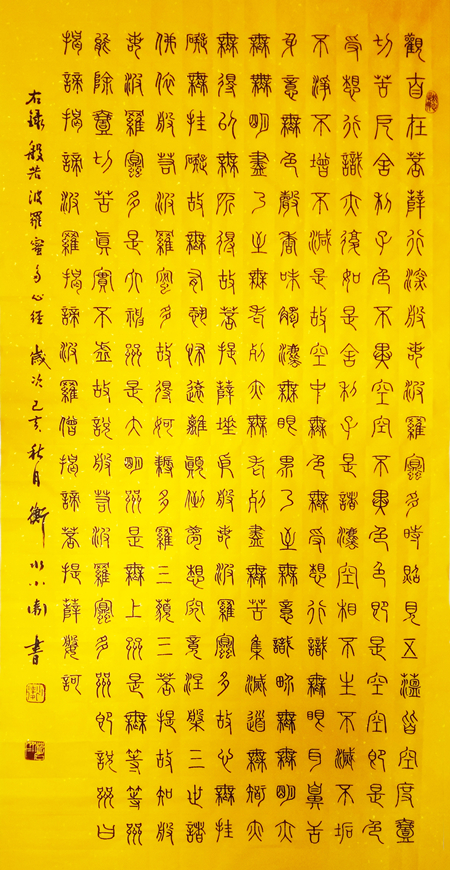 觀自在菩薩行深般若波羅蜜多時照見五蘊皆空度壹
切苦厄舍利子色不異空空不異色色即是空空即是色
受想行識亦復如是舍利子是諸法空相不生不滅不垢
不淨不增不減是故空中無色無受想行識無眼耳鼻舌
身意無色聲香味觸法無眼界乃至無意識界無無明亦
無無明盡乃至無老死亦無老死盡無苦集滅道無智亦
無得以無所得故菩提薩埵依般若波羅蜜多故心無挂
礙無挂礙故無有恐怖遠離顛倒夢想究竟涅槃三世諸
佛依般若波羅蜜多故得阿耨多羅三藐三菩提故知般
若波羅蜜多是大神咒是大明咒是無上咒是無等等咒
能除壹切苦真實不虛故說般若波羅蜜多咒即說咒曰
揭諦揭諦波羅揭諦波羅僧揭諦菩提薩婆訶
右錄般若波羅蜜多心經 歲次己亥秋月 衡水小南書